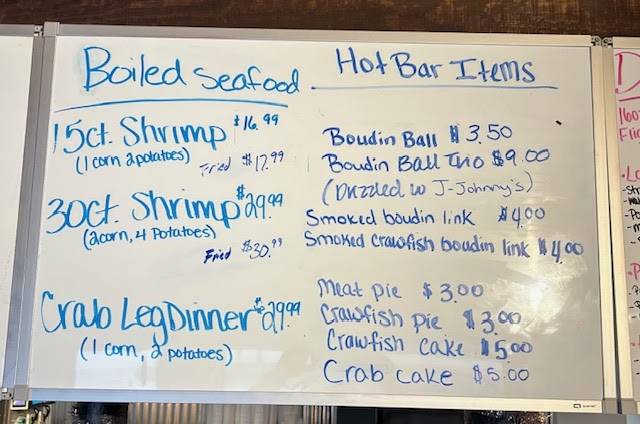 Boiled Seafood
15ct. Shrimp $16.99
(1 corn 2potatoes)
Fried $17.99
30ct. Shrimp $29.99
(2corn, 4 Potatoes)
Fried $30.99
Crab Leg Dinner $29.99
(1 corn, 2 potatoes)
Hot Bar Items
Boudin Ball $3.50
Boudin Ball Trio $9.00
(Drizzled w J-Johnny's)
Smoked boudin link $4.00
Smoked Crawfish boudin link $4.00
Meat pie $3.00
Crawfish pie $3.00
Crawfish cake $5.00
Crab cake $5.00